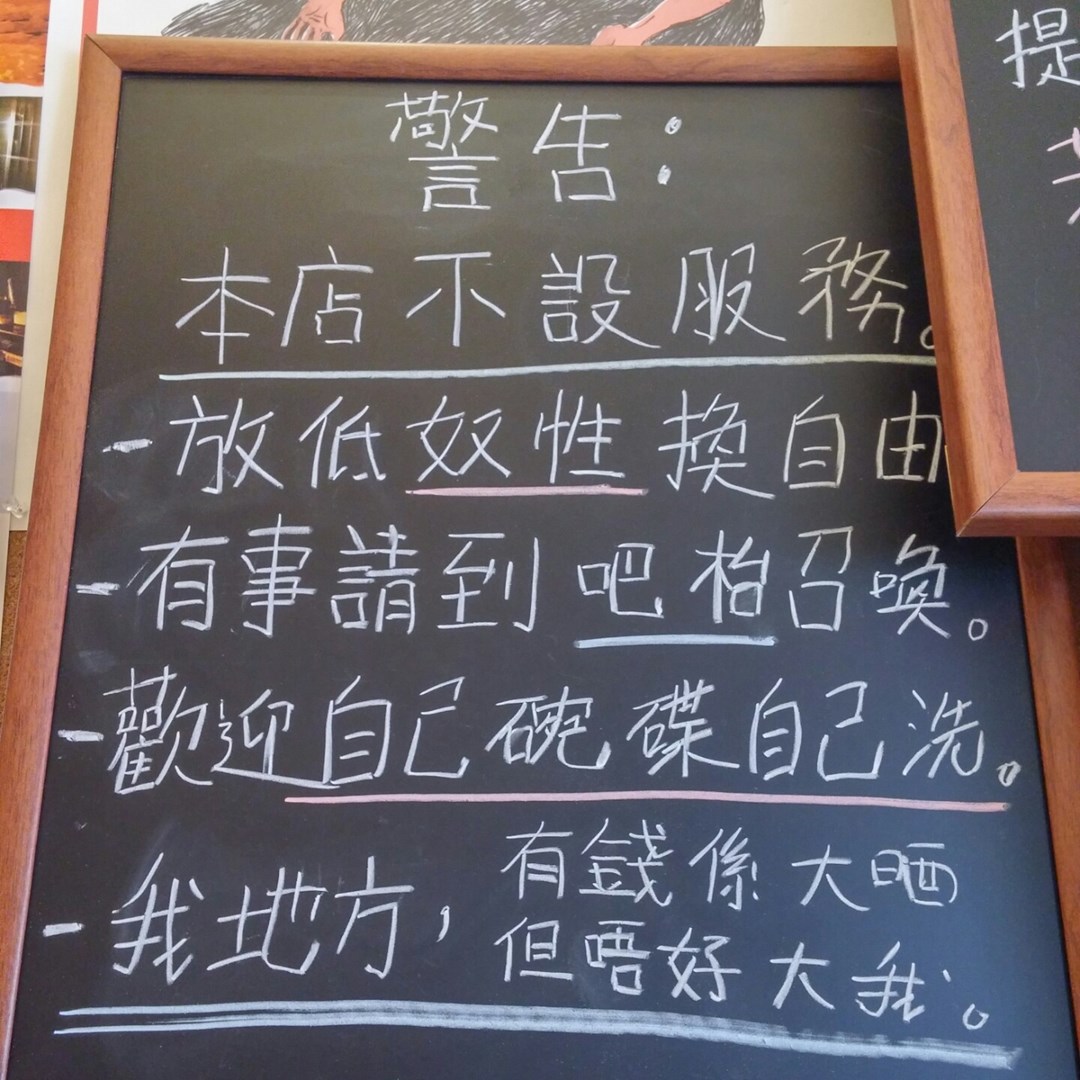 警告：
本店不設服務。
- 放低奴性換自由
- 有事請到吧枱召喚。
- 歡迎自己碗碟自己洗。
- 我地方，有錢係大晒
但唔好大我。
提